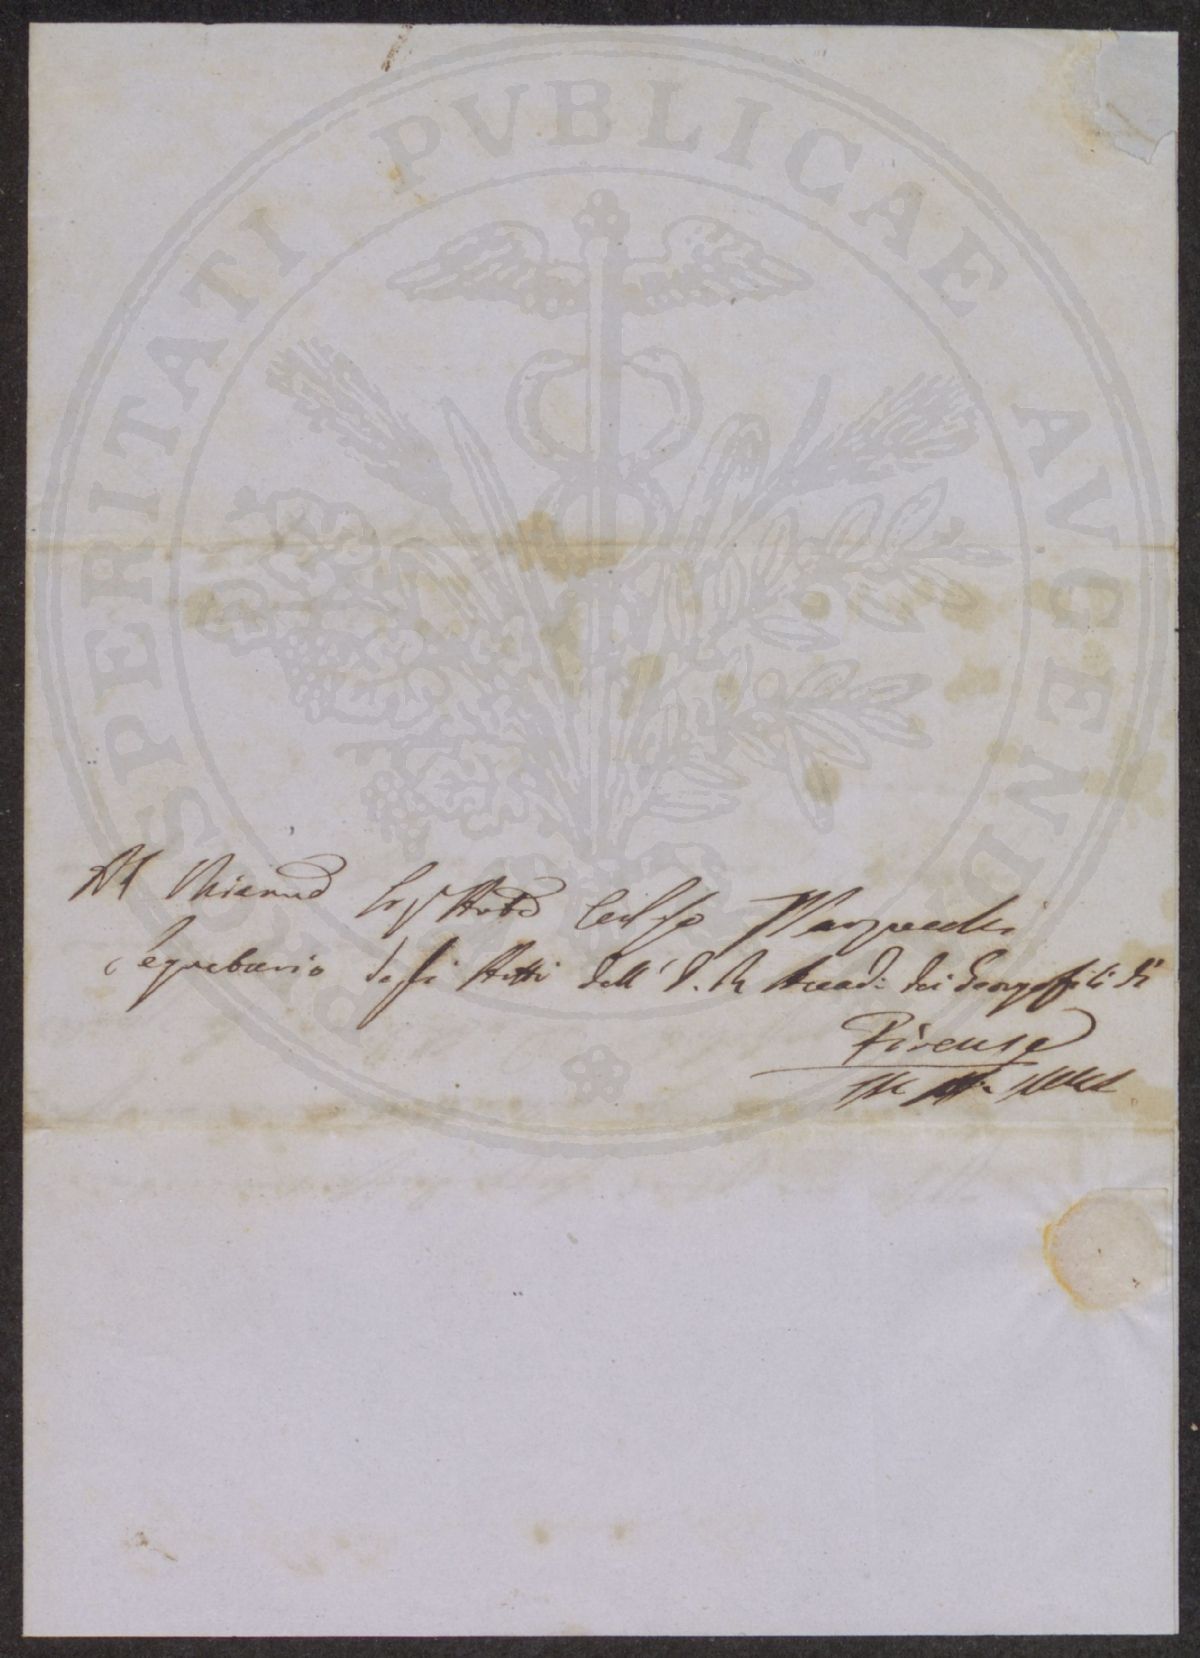 PROSPERITATI PVBLICAE AVGENDAE
Al Chiarmo Sigr Dottre Celso Marzucchi
Segretario degli Atti dell' I. R. Accad: dei Georgofili di
Firenze